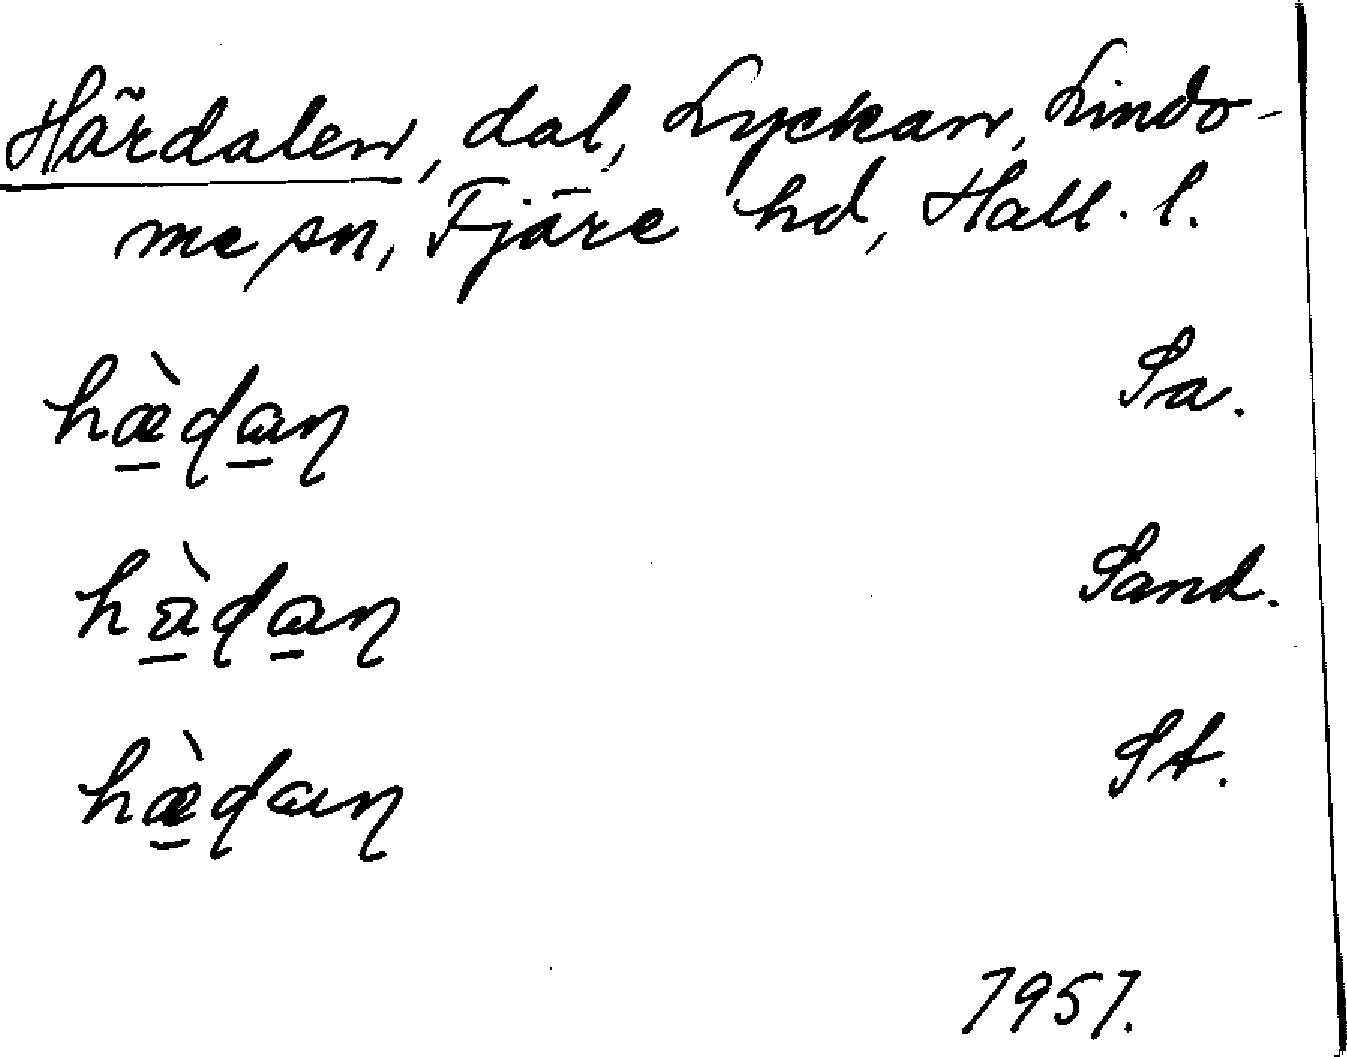 Härdalen, dal, Lyckan, Lindo-
me sn, Fjäre hd, Hall. l.
hæ̠̀ɖa̠ɳ Sa.
Sand.
hæ̠̀ɖaɳ St.
1957.